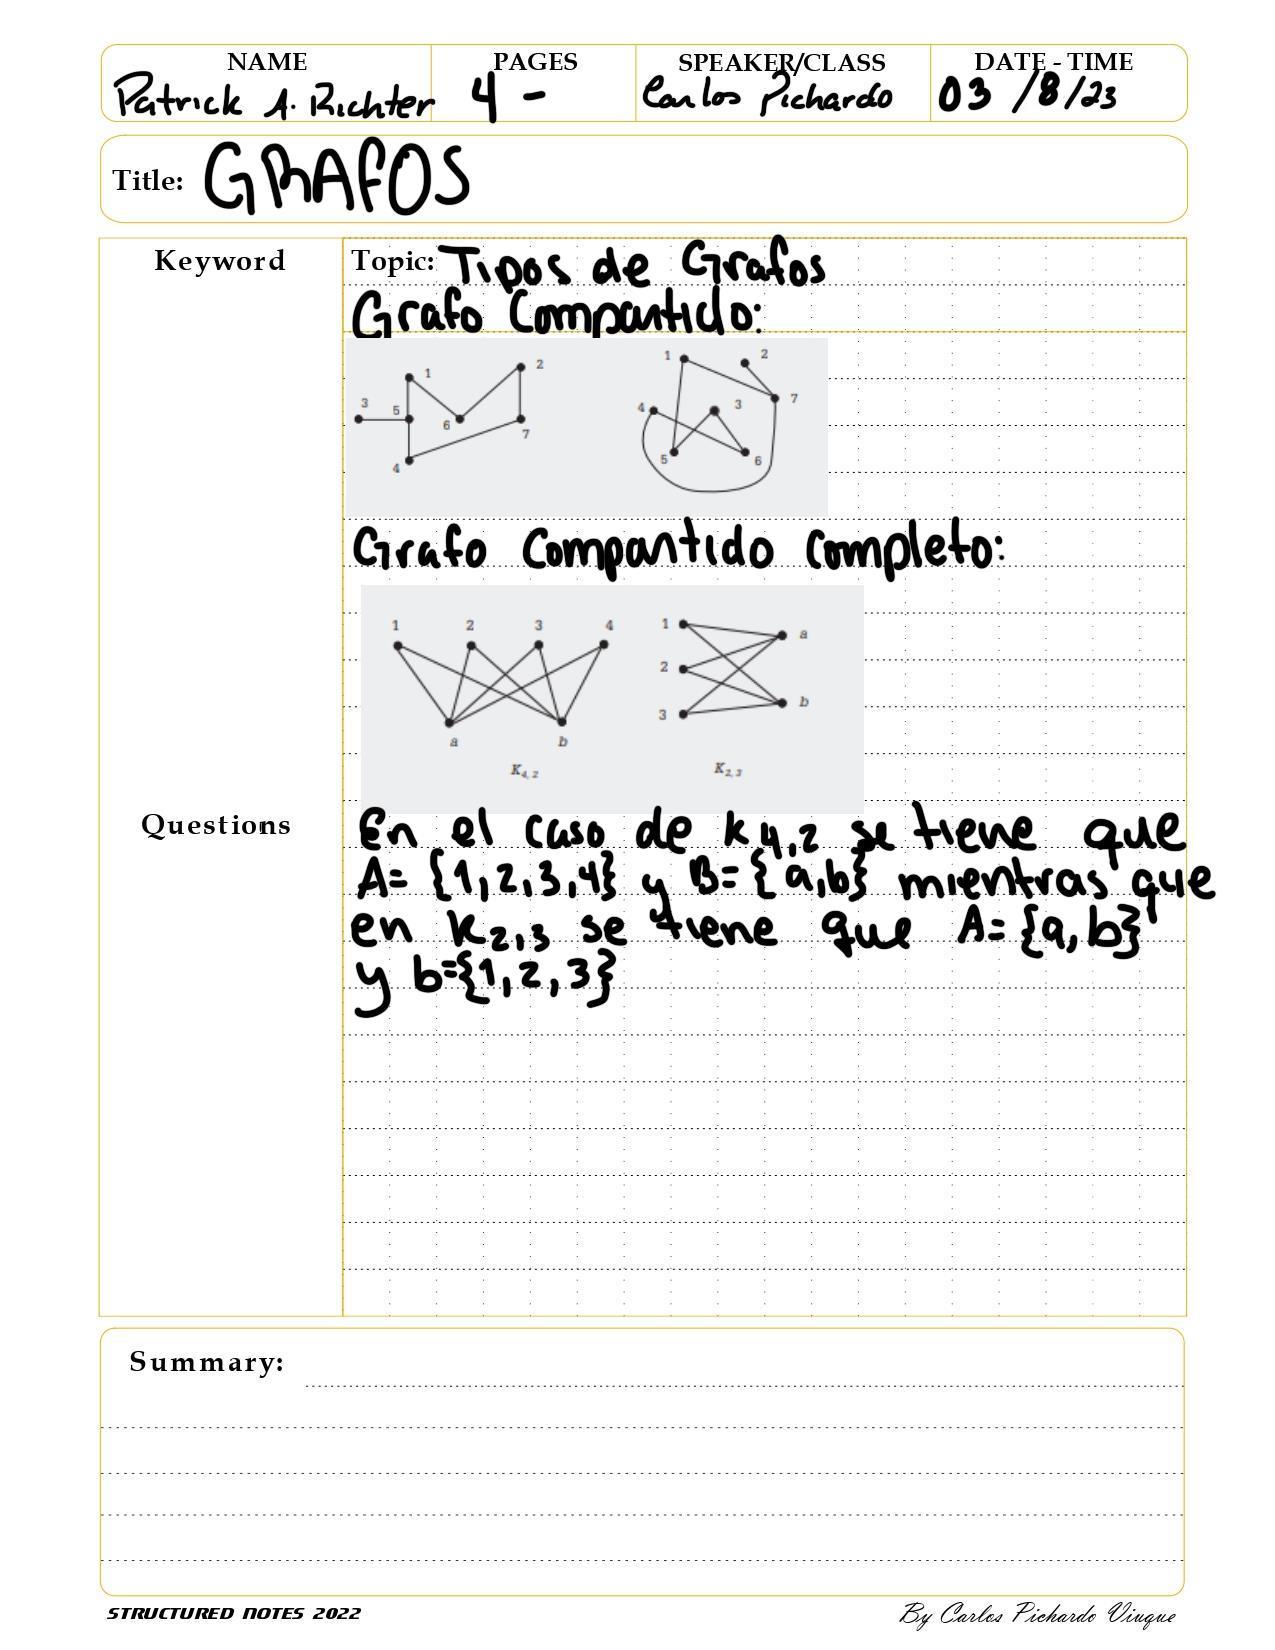 NAME PAGES SPEAKER/CLASS DATE - TIME
Patrick A. Richter 4 - Carlos Pichardo 03 /8/23
Title: GRAfOS
Keyword Topic: Tipos de Grafos
Grafo Compartido:
1 2 1 2
3 5 6 7 4 3 7
4 5 6
Grafo Compartido Completo:
1 2 3 4 1 a
2
a b 3 b
K4, 2 K2, 3
Questions En el caso de K4,2 se tiene que
A= {1,2,3,4} y B={a,b} mientras que
en K2,3 se tiene que A={a,b}
y b={1,2,3}
Summary:
STRUCTURED NOTES 2022 By Carlos Pichardo Viuque